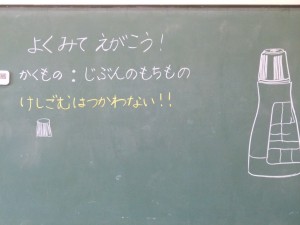 よくみて えがこう!
かくもの：じぶんのもちもの
けしごむはつかわない!!